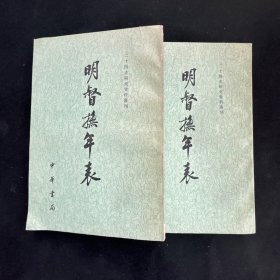 二十四史研究資料叢刊
明督撫年表
中華書局
二十四史研究資料叢刊
明督撫年表